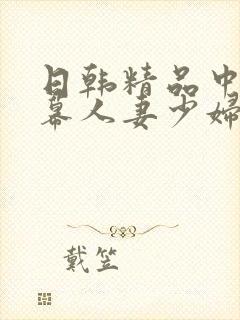 日韩精品中
幕人妻少婦
戴笠